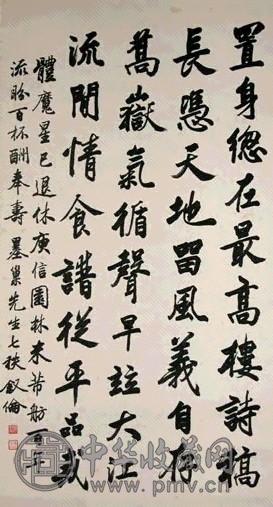 置身總在最高樓詩稿
長憑天地留風義自存
嵩嶽氣循聲早竝大江
流閒情食譜從平品式
體魔星已退休庾信園林米芾舫百年
流盼百杯酬奉壽 墨巢先生七秩 倫
中华收藏网
www.pmv.cn